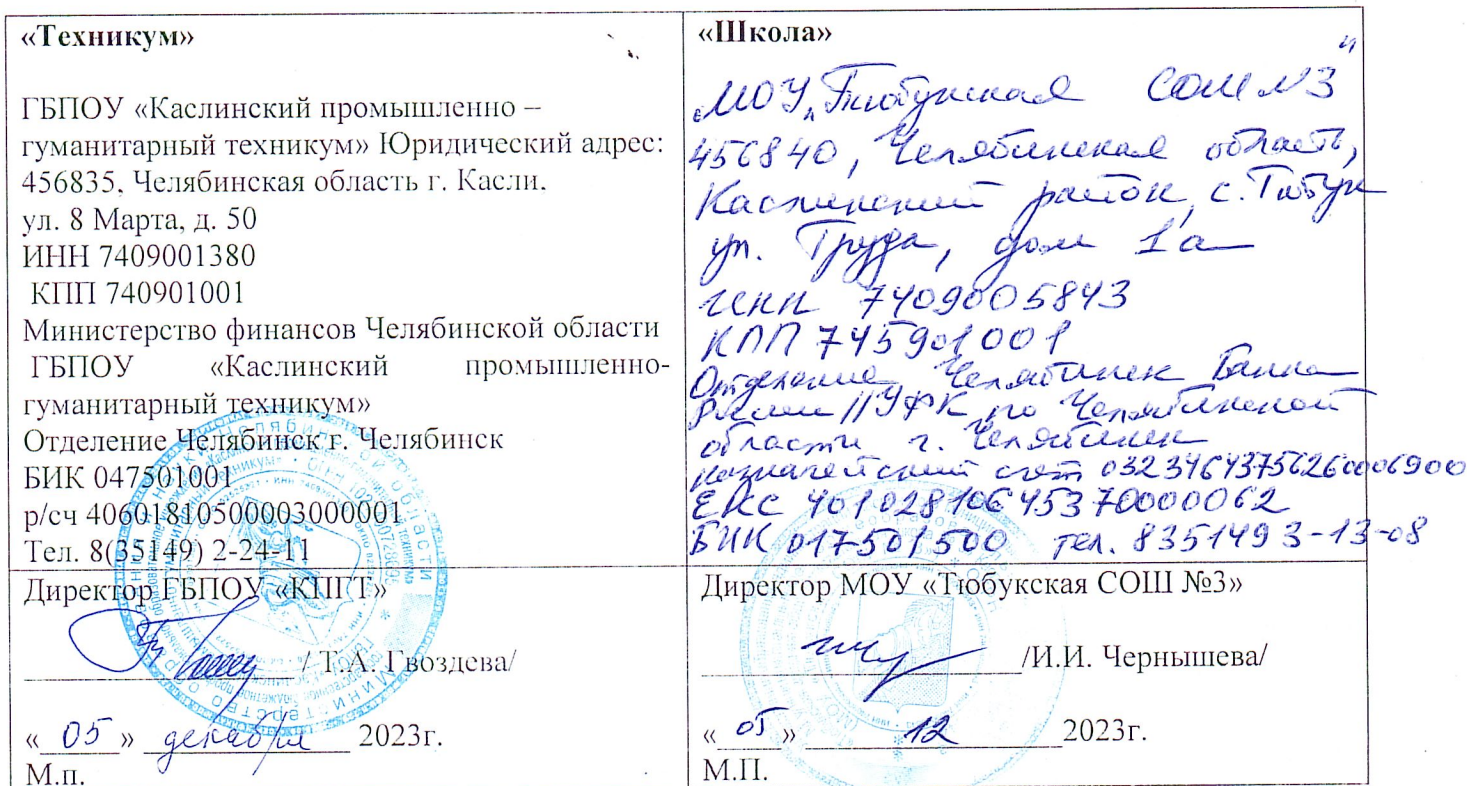 «Техникум»
ГБПОУ «Каслинский промышленно –
гуманитарный техникум» Юридический адрес:
456835, Челябинская область г. Касли.
ул. 8 Марта, д. 50
ИНН 7409001380
КПП 740901001
Министерство финансов Челябинской области
ГБПОУ «Каслинский промышленно-
гуманитарный техникум»
Отделение Челябинск г. Челябинск
БИК 047501001
р/сч 40601810500003000001
Тел. 8(35149) 2-24-11
Директор ГБПОУ «КПГТ»
/ Т.А. Гвоздева/
« 05 » декабря 2023г.
М.п.
«Школа»
МОУ „Тюбукская СОШ №3"
456840, Челябинская область,
Каслинский район, с. Тюбук
ул. Труда, дом 1а
ИНН 7409005843
КПП 745901001
Отделение Челябинск Банка
России //УФК по Челябинской
области г. Челябинск
казначейский счет 03234643756260006900
ЕКС 40102810645370000062
БИК 017501500 тел. 8351493-13-08
Директор МОУ «Тюбукская СОШ №3»
/И.И. Чернышева/
« 05 » 12 2023г.
М.П.